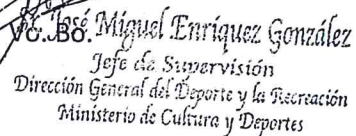 Vo. Bo. José Miguel Enríquez González
Jefe de Supervisión
Dirección General del Deporte y la Recreación
Ministerio de Cultura y Deportes